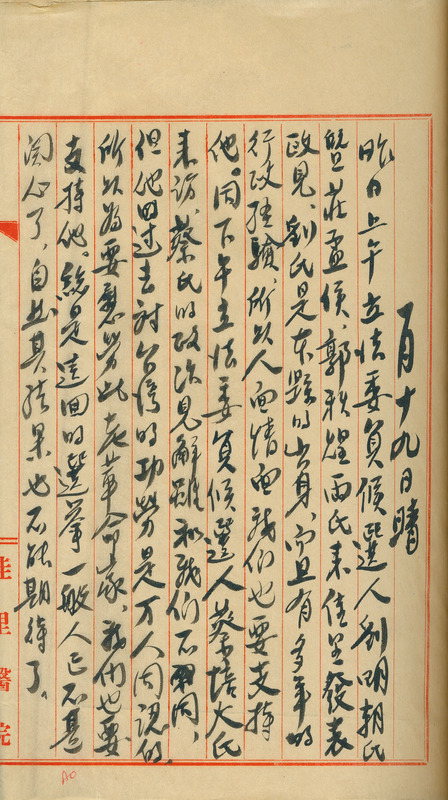 一月十九日晴
昨日上午立法委員候選人劉明朝氏
暨莊孟侯、郭秋煌兩氏來佳里發表
政見、劉氏是本縣的出身、而且有多年的
行政經驗、所以人面情面我們也要支持
他。同下午立法委員候選人蔡培火氏
來訪、蔡氏的政治見解雖和我們不同、
但他的過去對台灣的功勞是万人同認的、
所以為要慰勞此老革命家、我們也要
支持他。總是這回的選舉一般人已不甚
関心了、自然其結果也不能期待了。
佳里醫院